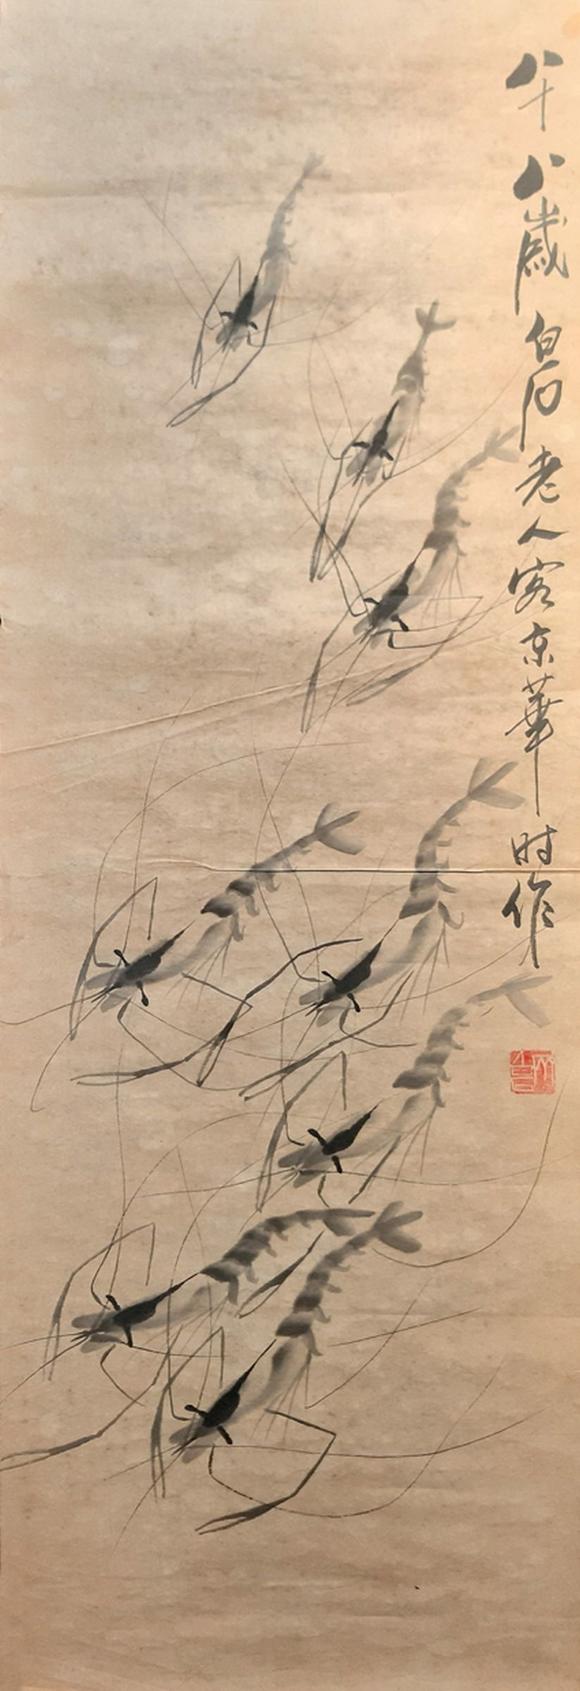 八十八歲白石老人客京華时作